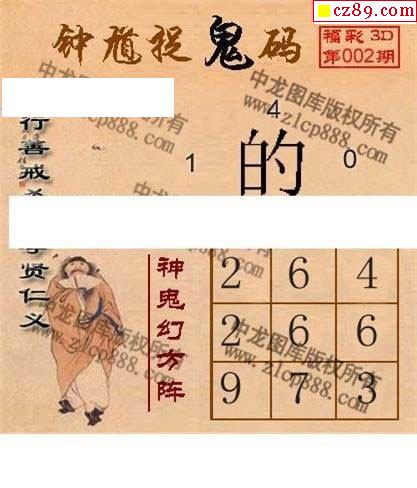 cz89.com
钟馗捉鬼码
福彩 3D
第002期
中龙图库版权所有
www.zlcp888.com
4
1
的
0
行善戒
贤仁义
神鬼幻方阵
2 6 4
2 6 6
9 7 3
中龙图库版权所有
www.zlcp888.com